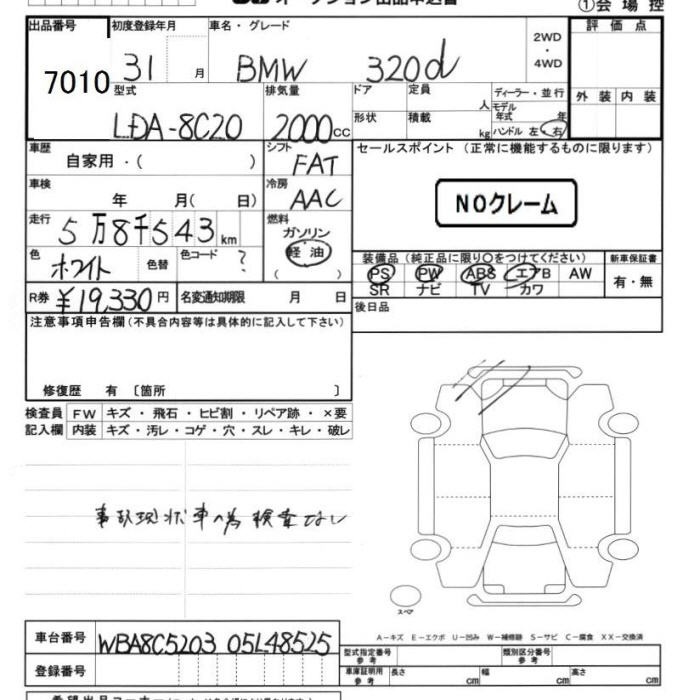 オークション出品申込書
①会場控
出品番号 初度登録年月 車名・グレード 2WD・4WD 評価点
7010 31 月 BMW 320d
型式 排気量 ドア 定員 人 ディーラー・並行 外装 内装
LDA-8C20 2000cc 形状 積載 kg モデル年式 年 ハンドル 左・右
車歴 シフト セールスポイント(正常に機能するものに限ります)
自家用・( ) FAT
車検 冷房 NOクレーム
年 月( 日) AAC
走行 燃料
5万8千543km ガソリン
色 色替 色コード 軽油 装備品(純正品に限り○をつけてください) 新車保証書
ホワイト ? ( ) PS PW ABS エアB AW 有・無
SR ナビ TV カワ
R券 ¥19,330円 名変通知期限 月 日 後日品
注意事項申告欄(不具合内容等は具体的に記入して下さい)
修復歴 有〔箇所 〕
検査員 FW キズ・飛石・ヒビ割・リペア跡・×要
記入欄 内装 キズ・汚レ・コゲ・穴・スレ・キレ・破レ
事故現状車の為検査なし
スペア
A-キズ E-エクボ U-凹み W-補修跡 S-サビ C-腐食 XX-交換済
車台番号 WBA8C5203 05L48525
型式指定番号 参考 類別区分番号 参考
登録番号 車庫証明用 参考 長さ cm 幅 cm 高さ cm